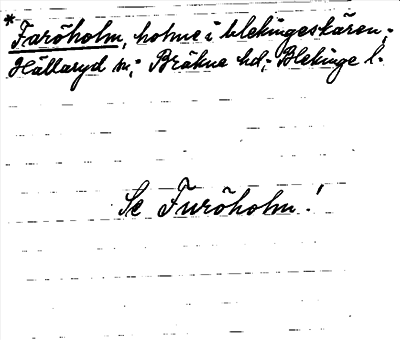 *Faröholm, holme i blekingeskären;
Hällaryd sn; Bräkne hd; Blekinge l.
Se Furöholm!